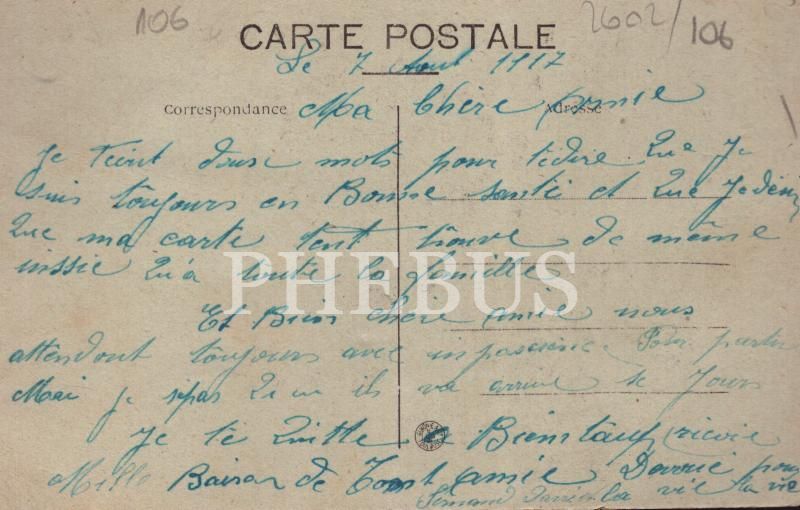 106
2602/106
CARTE POSTALE
Le 7 Aout 1917
Correspondance
Adresse
Ma Chère amie
Je deux mots pour tedire que Je
suis toujours en Bonne santé et que Jedési
que ma carte tent trouve de même
inssie qu'a toute la famille
PHEBUS
Et Bien chère amie nous
attendont toujours avec inpascience Pour partir
Mai je spas quan il va arrive se Jours
Je te quitte a Bientaup
Mille Baison de Tont amie Devoué pour
la vie la vie